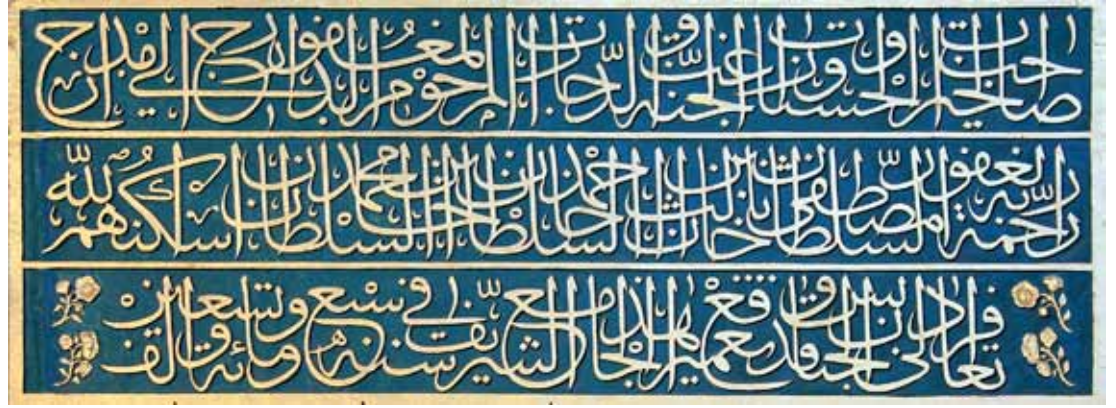 صاحب الخيرات والحسنات وراغب الجنة والدرجات المرحوم المغفور المندرج الى مدارج
رحمة ربه الغفور السلطان مصطفى خان ثالث ابن السلطان احمد خان ابن السلطان محمد خان اسكنهم الله
تعالى في فراديس الجنان قد وقع تعمير هذا الجامع الشريف في سنة سبع وتسعين ومائة والف